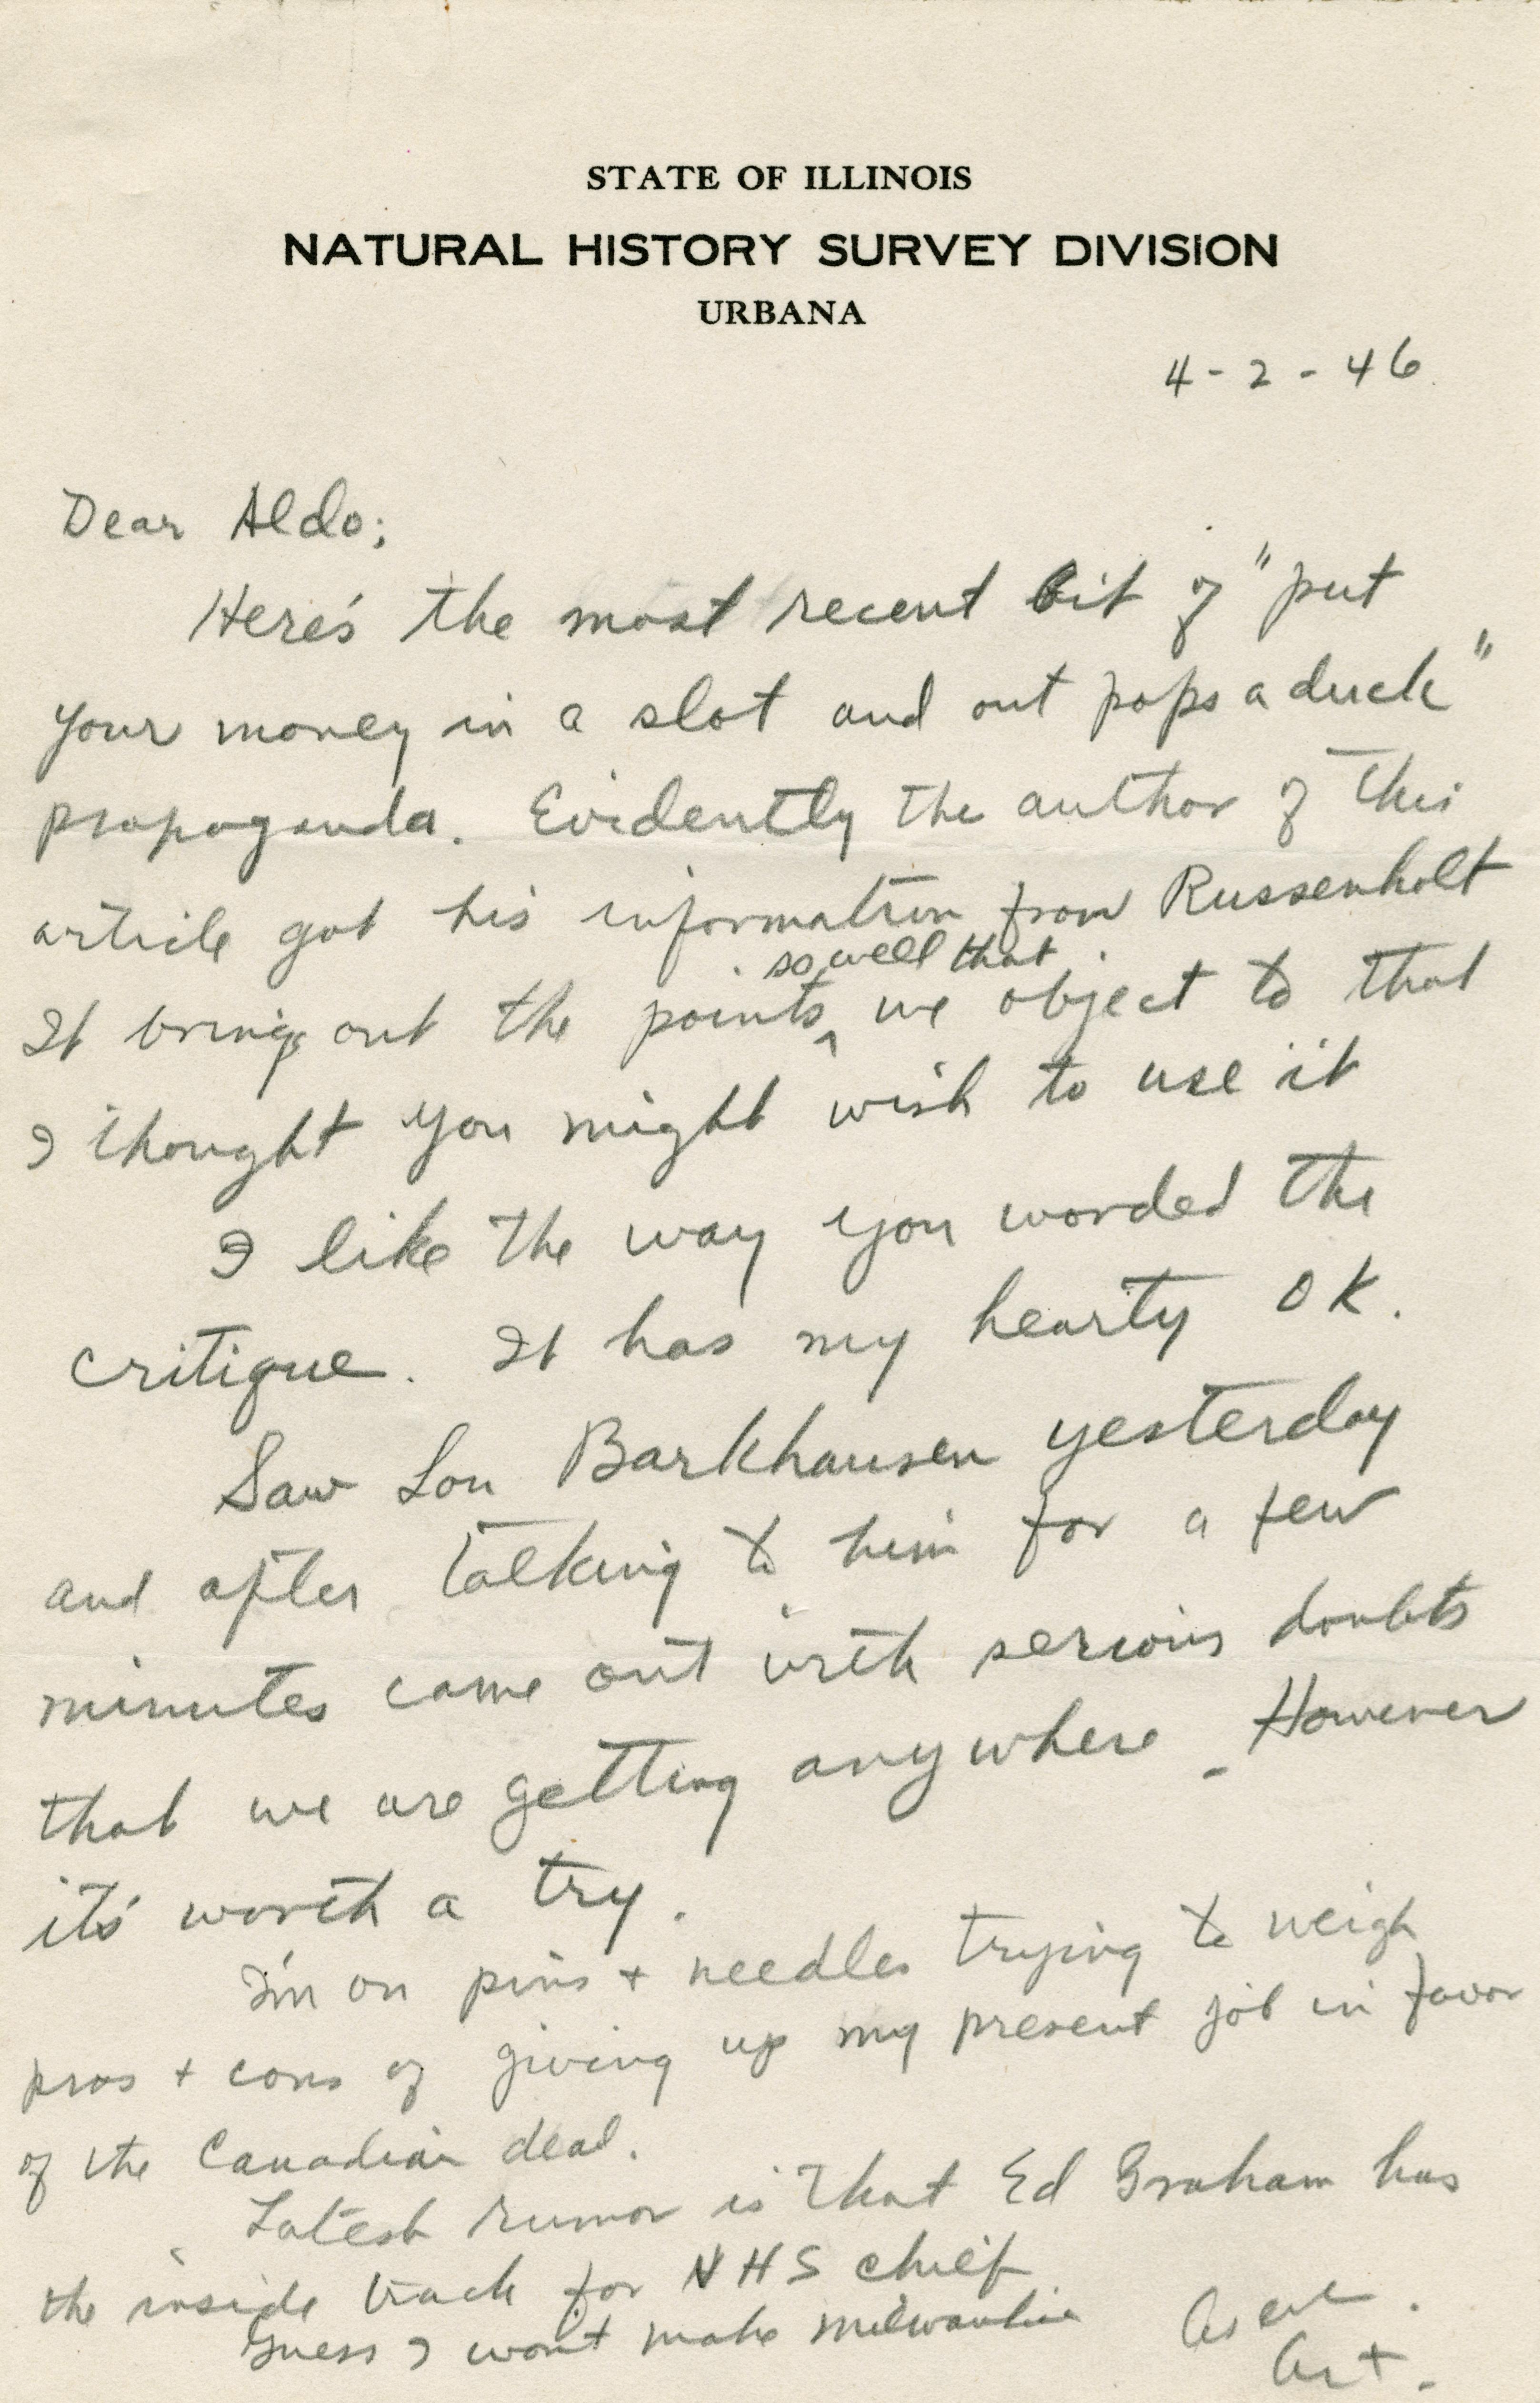 STATE OF ILLINOIS
NATURAL HISTORY SURVEY DIVISION
URBANA
4-2-46
Dear Aldo;
Here's the most recent bit of "put
your money in a slot and out pops a duck"
propaganda. Evidently the author of this
article got his information from Russenholt
so well that
It brings out the points ^ we object to that
I thought you might wish to use it
I like the way you worded the
critique. It has my hearty OK.
Saw Lou Barkhausen yesterday
and after talking to him for a few
minutes came out with serious doubts
that we are getting anywhere. However
it's worth a try.
I'm on pins + needles trying to weigh
pros + cons of giving up my present job in favor
of the Canadian deal.
Latest rumor is that Ed Graham has
the inside track for NHS chief
Guess I won't make Milwaukie
As ever.
Art.